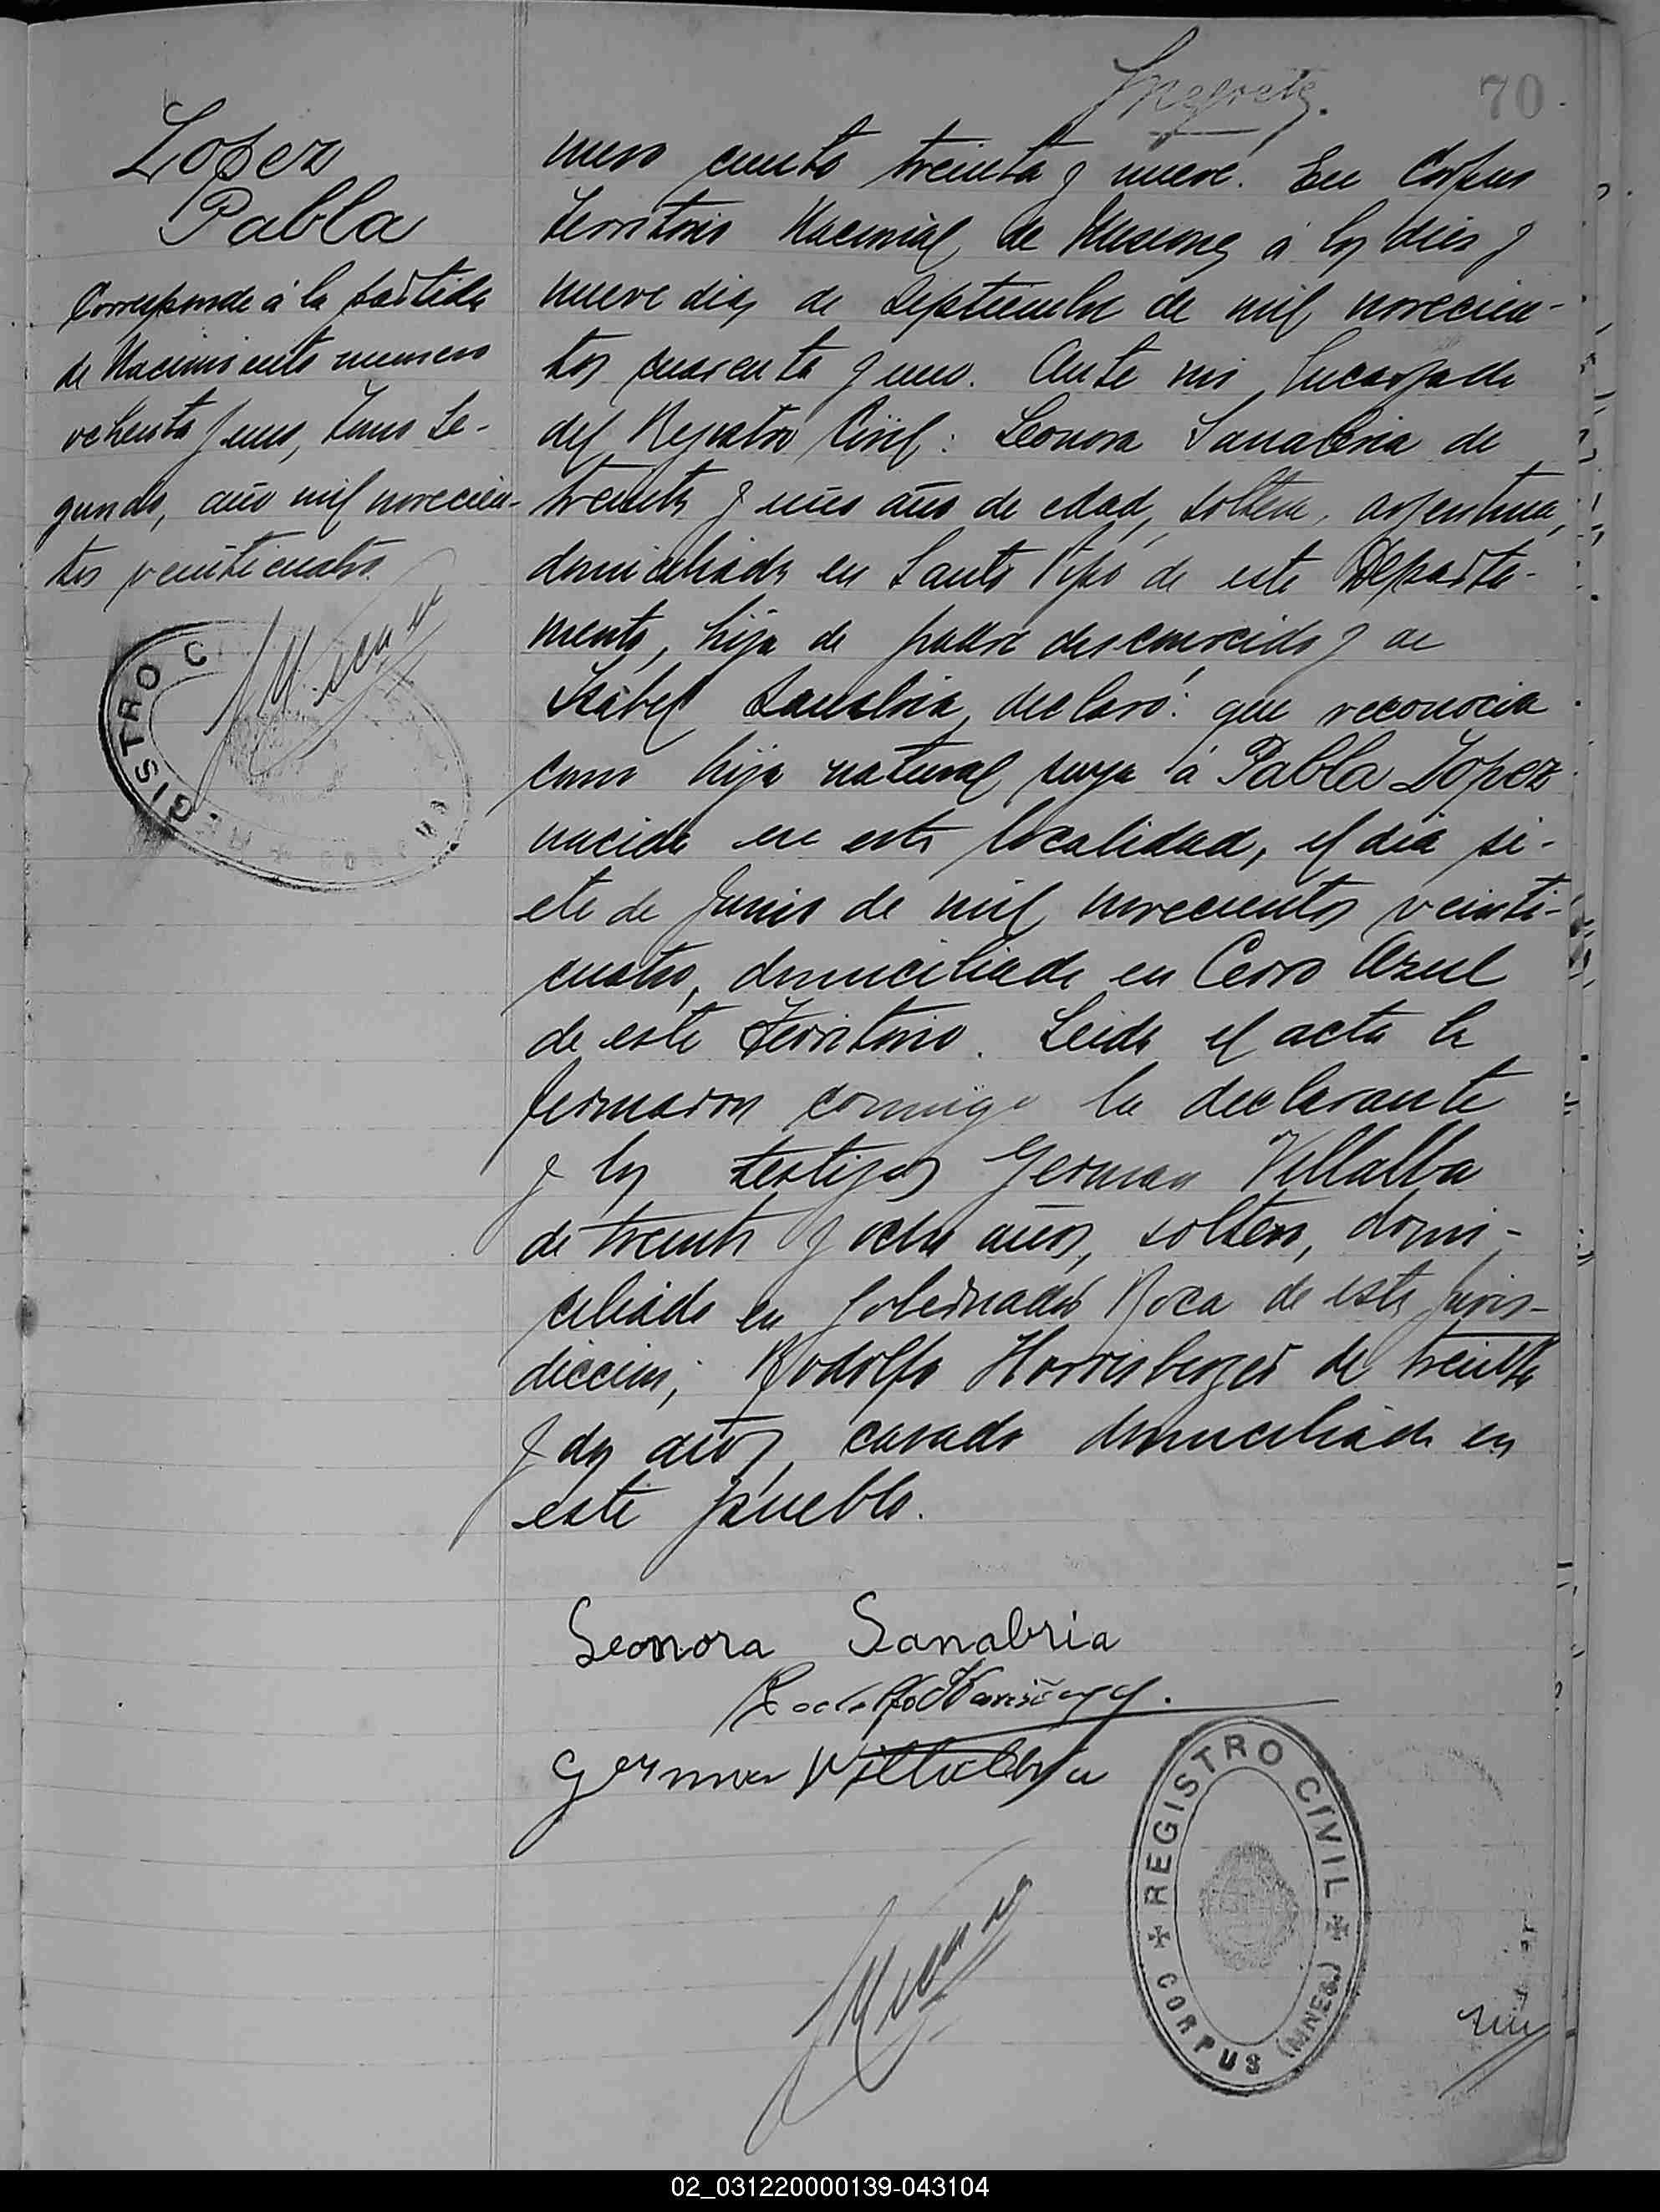 70
Lopez
Pabla
Corresponde á la partida
de Nacimiento numero
ochenta y uno, Tomo Se-
gundo, año mil novecien-
tos veinticuatro.
REGISTRO CIVIL
CORPUS
mero ciento treinta y nueve. En Corpus
Territorio Nacional de Misiones á los dies y
nueve dias de Septiembre de mil novecien-
tos cuarenta y uno. Ante mi Encargado
del Registro Civil: Leonora Sanabria de
treinta y un años de edad, soltera, argentina,
domiciliada en Santo Pipó de este Departa-
mento, hija de padre desconocido y de
Isabel Sanabria, declaró: que reconocia
como hija natural suya á Pabla Lopez
nacida en esta localidad, el dia si-
ete de Junio de mil novecientos veinti-
cuatro, domiciliada en Cerro Azul
de este Territorio. Leida el acta la
firmaron conmigo la declarante
y los testigos German Villalba
de treinta y ocho años, soltero, domi-
ciliado en Gobernador Roca de esta juris-
diccion; Rodolfo Horrisberger de treinta
y dos años, casado domiciliado en
este pueblo.
Leonora Sanabria
German Villalba
REGISTRO CIVIL
CORPUS (MNES.)
02_031220000139-043104